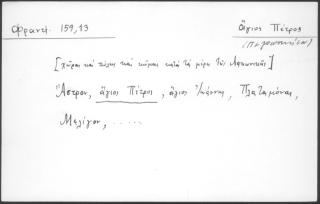 Φραντ. 159,13
ἅγιος Πέτρος
(Πελοποννήσου)
[χώρας καὶ πόλεις καὶ κώμας κατὰ τὰ μέρη τῆς Λακωνικῆς]
Ἄστρον, ἅγιος Πέτρος, ἅγιος Ἰωάννης, Πλαταμόνας,
Μελίγον, .....